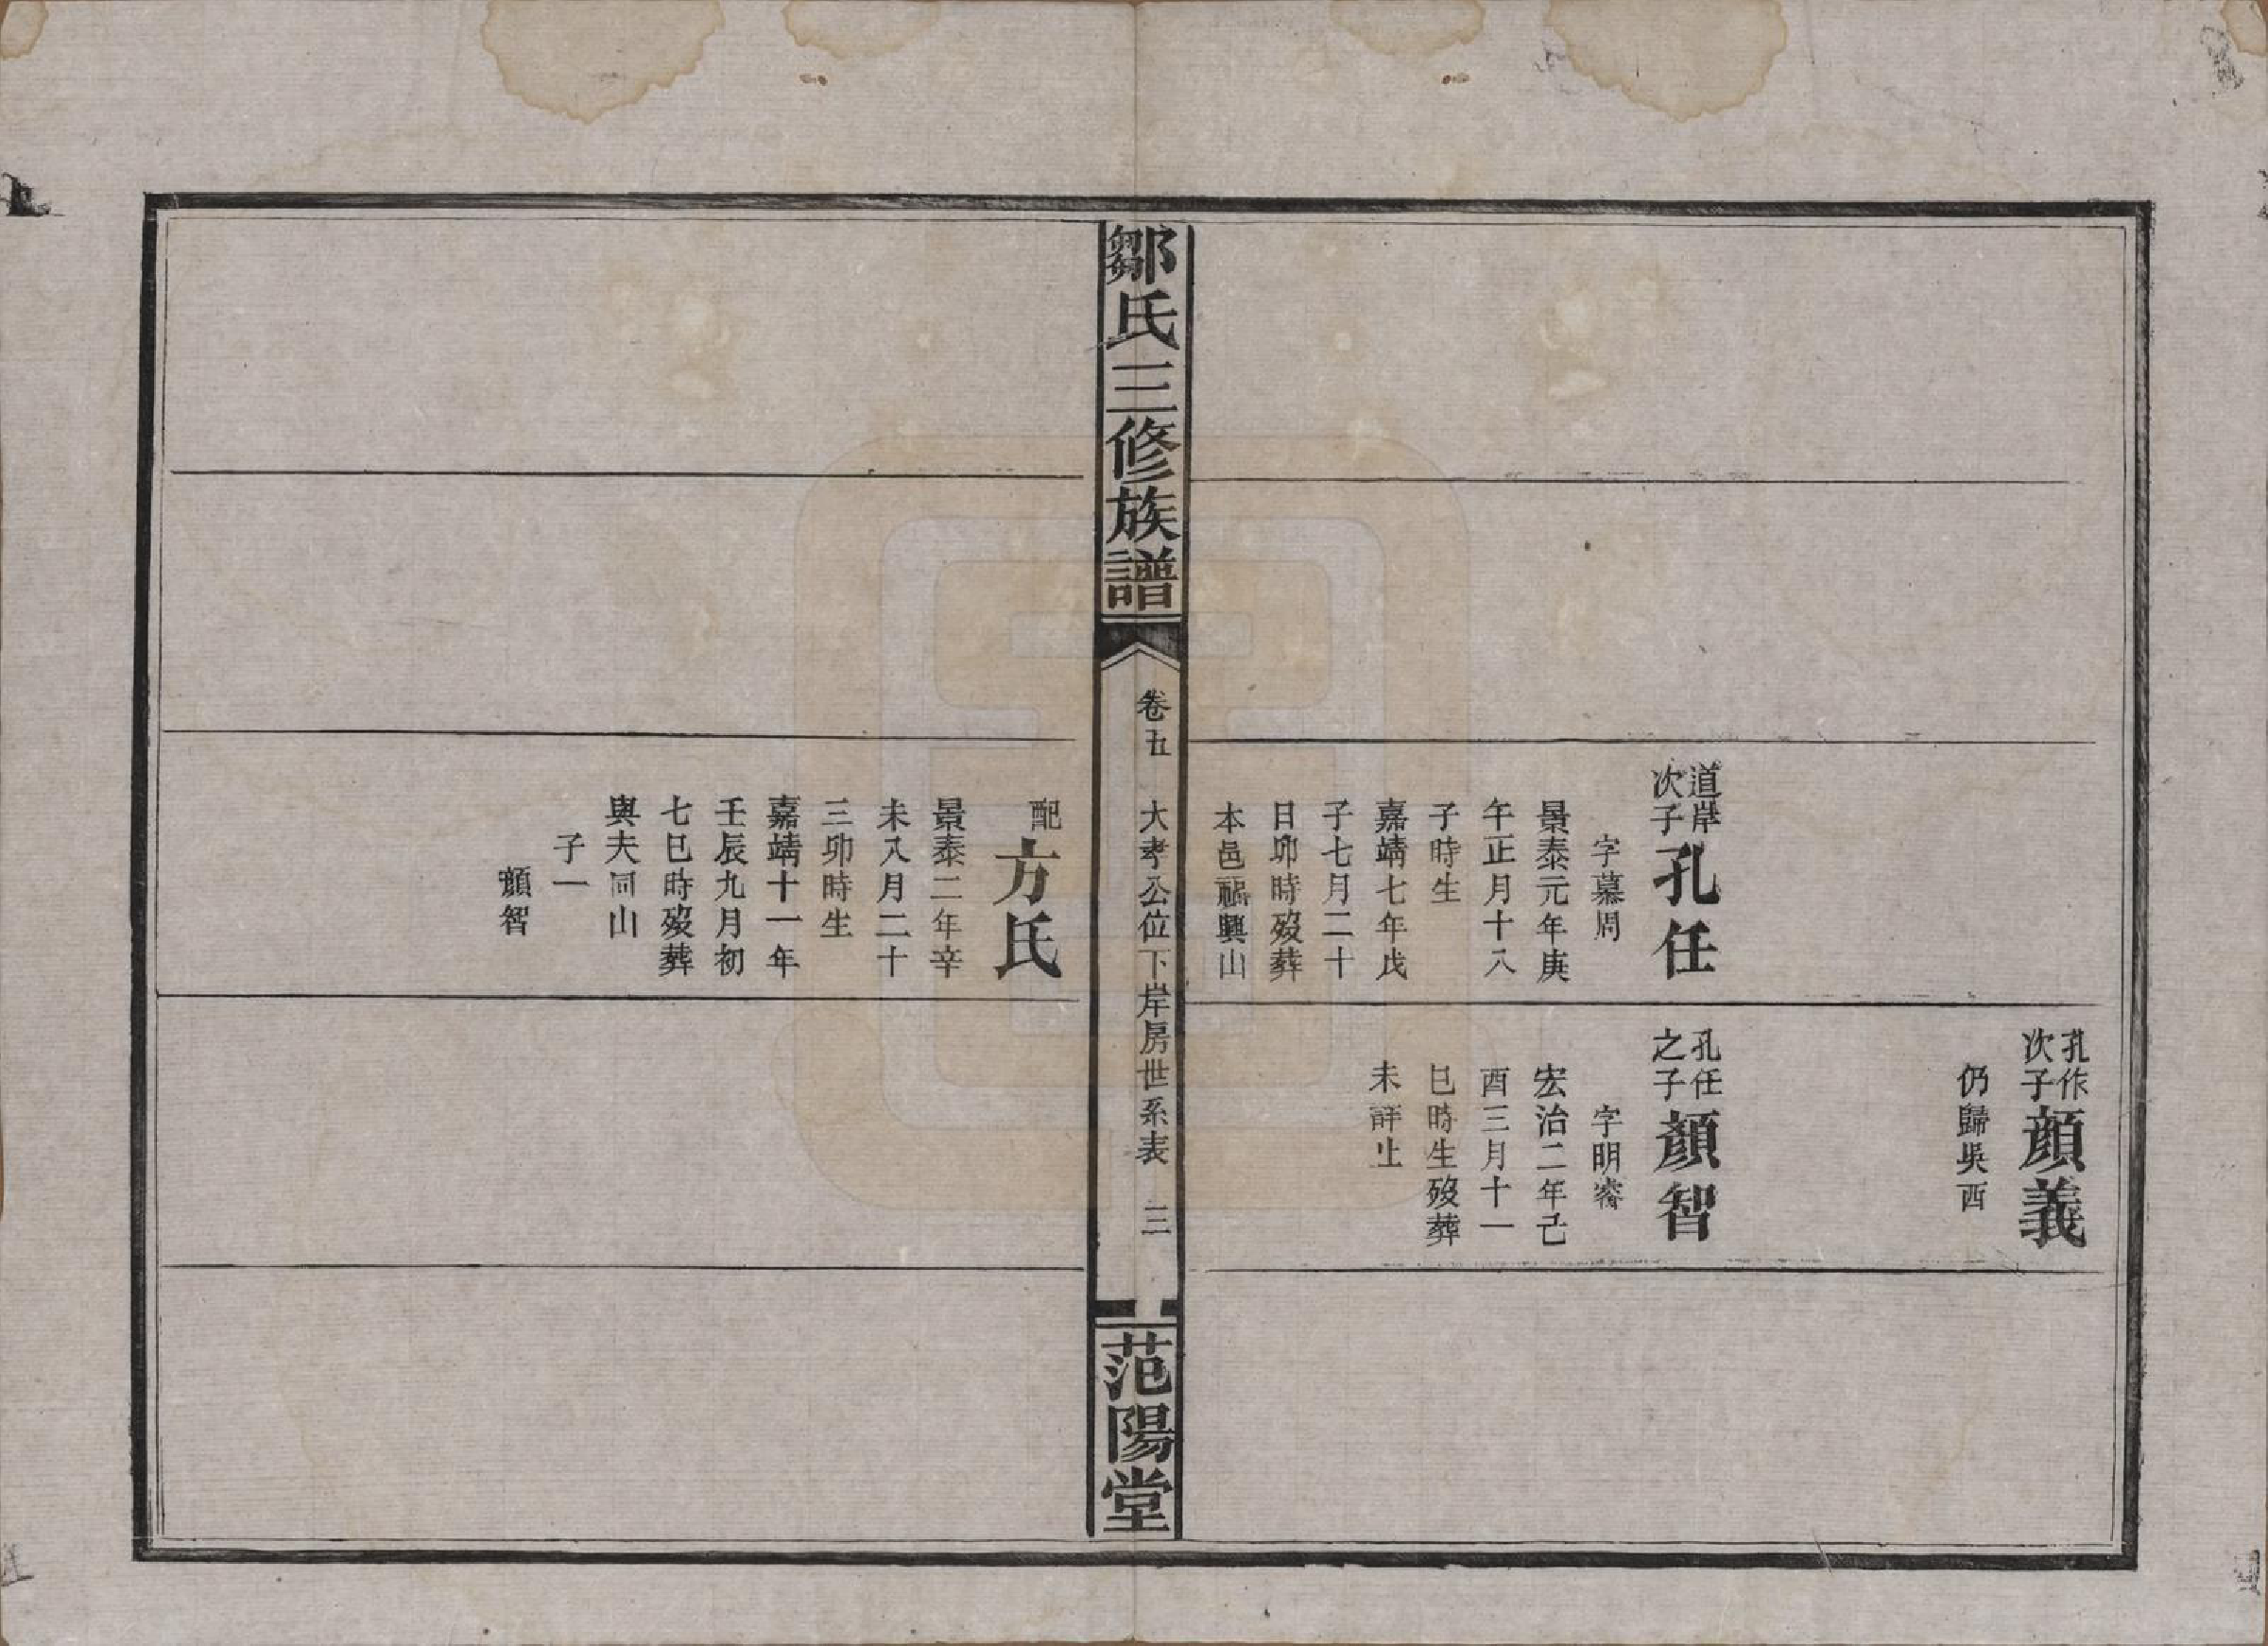 道岸
次子
孔任
字慕周
景泰元年庚
午正月十八
子時生
嘉靖七年戊
子七月二十
日卯時歿葬
本邑福興山
孔作
次子
顏義
仍歸吳西
孔任
之子
顏智
字明睿
宏治二年己
酉三月十一
巳時生歿葬
未詳止
鄒氏三修族譜
卷五
大孝公位下岸房世系表
三
范陽堂
配
方氏
景泰二年辛
未八月二十
三卯時生
嘉靖十一年
壬辰九月初
七巳時歿葬
與夫同山
子一
顏智